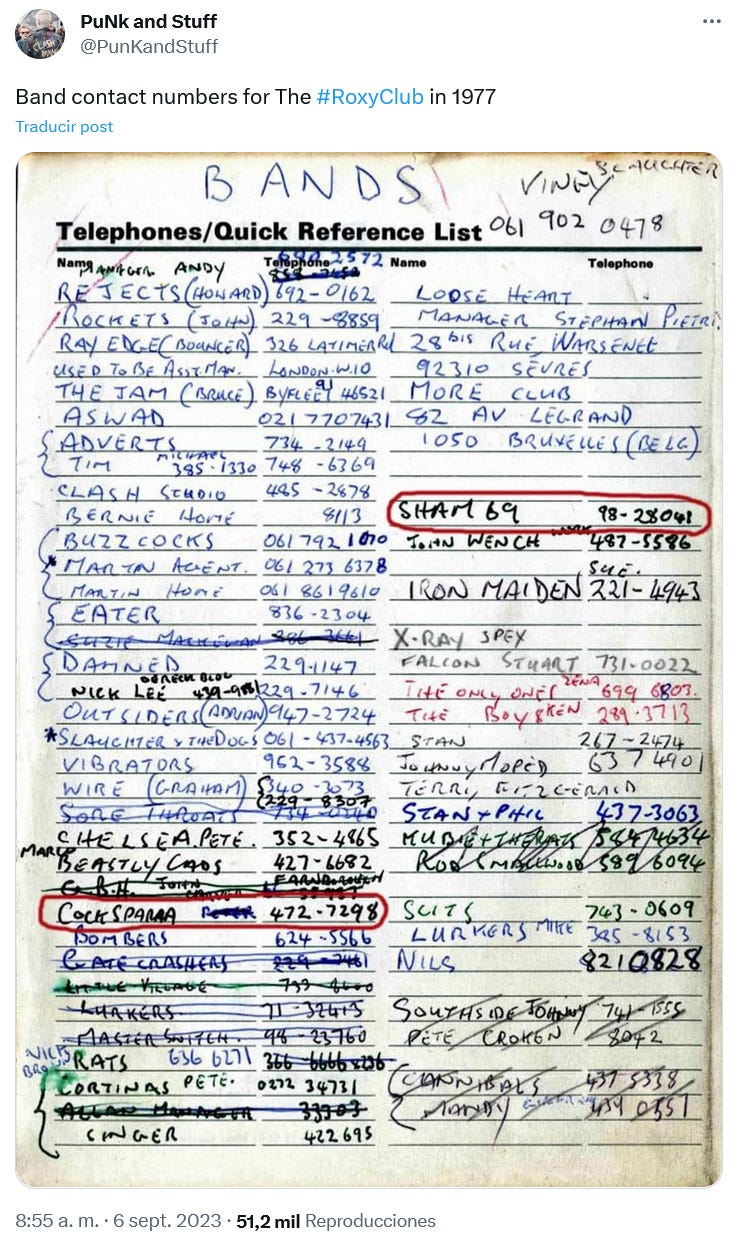 PuNk and Stuff
@PunKandStuff
Band contact numbers for The #RoxyClub in 1977
Traducir post
BANDS
VINNY SLAUGHTER
061 902 0478
Telephones/Quick Reference List
Name Telephone Name Telephone
MANAGER ANDY 2572
REJECTS (HOWARD) 692-0162
ROCKETS (JOHN) 229-8859
RAY EDGE (BOUNCER) 326 LATIMER Rd
USED TO BE ASST. MAN. LONDON·W.10
THE JAM (BRUCE) BYFLEET 91 46521
ASWAD 021 7707431
ADVERTS 734-2149
TIM MICHAEL 385·1330 748-6369
CLASH STUDIO 485-2878
BERNIE HOME 8113
BUZZCOCKS 061 792 1070
* MARTIN AGENT. 061 273 6378
MARTIN HOME 061 8619610
EATER 836-2304
SUZIE
DAMNED 229·1147
NICK LEE 229-7146
OUTSIDERS (ADRIAN) 947-2724
*SLAUGHTER & THE DOGS 061-437-4563
VIBRATORS 952-3588
WIRE (GRAHAM) 340-3073
229-8307
SORE THROATS
CHELSEA. PETE. 352-4865
MARCO
BEASTLY CADS 427-6682
G.B.H. JOHN FARNBOROUGH
COCKSPARRA 472-7298
BOMBERS 624-5566
GATE CRASHERS
LITTLE VILLAGE
LURKERS 71-32415
MASTER SWITCH. 98-23760
RATS 636 6271
CORTINAS PETE. 0272 34731
ALLAN MANAGER 33303
SINGER 422695
LOOSE HEART
MANAGER STEPHAN PIETRI.
28 bis RUE WARSENEE
92310 SÈVRES
MORE CLUB
82 AV LEGRAND
1050 BRUXELLES (BELG)
SHAM 69 98-28041
JOHN WENCH WORK 487-5586
SUE.
IRON MAIDEN 221-4943
X-RAY SPEX
FALCON STUART 731-0022
THE ONLY ONES ZENA 699 6803.
THE BOYS KEN 289·3713
STAN 267-2474
JOHNNY MOPED 637 4901
TERRY FITZGERALD
STAN + PHIL 437-3063
584 4634
ROD SMALLWOOD 589 6094
SLITS 743-0609
LURKERS MIKE 385-8153
NILS 8210828
SOUTHSIDE JOHNNY 741-1555
PETE CROKEN 8042
CANNIBALS 437 5338
MANDY 439 0551
8:55 a. m. · 6 sept. 2023 · 51,2 mil Reproducciones